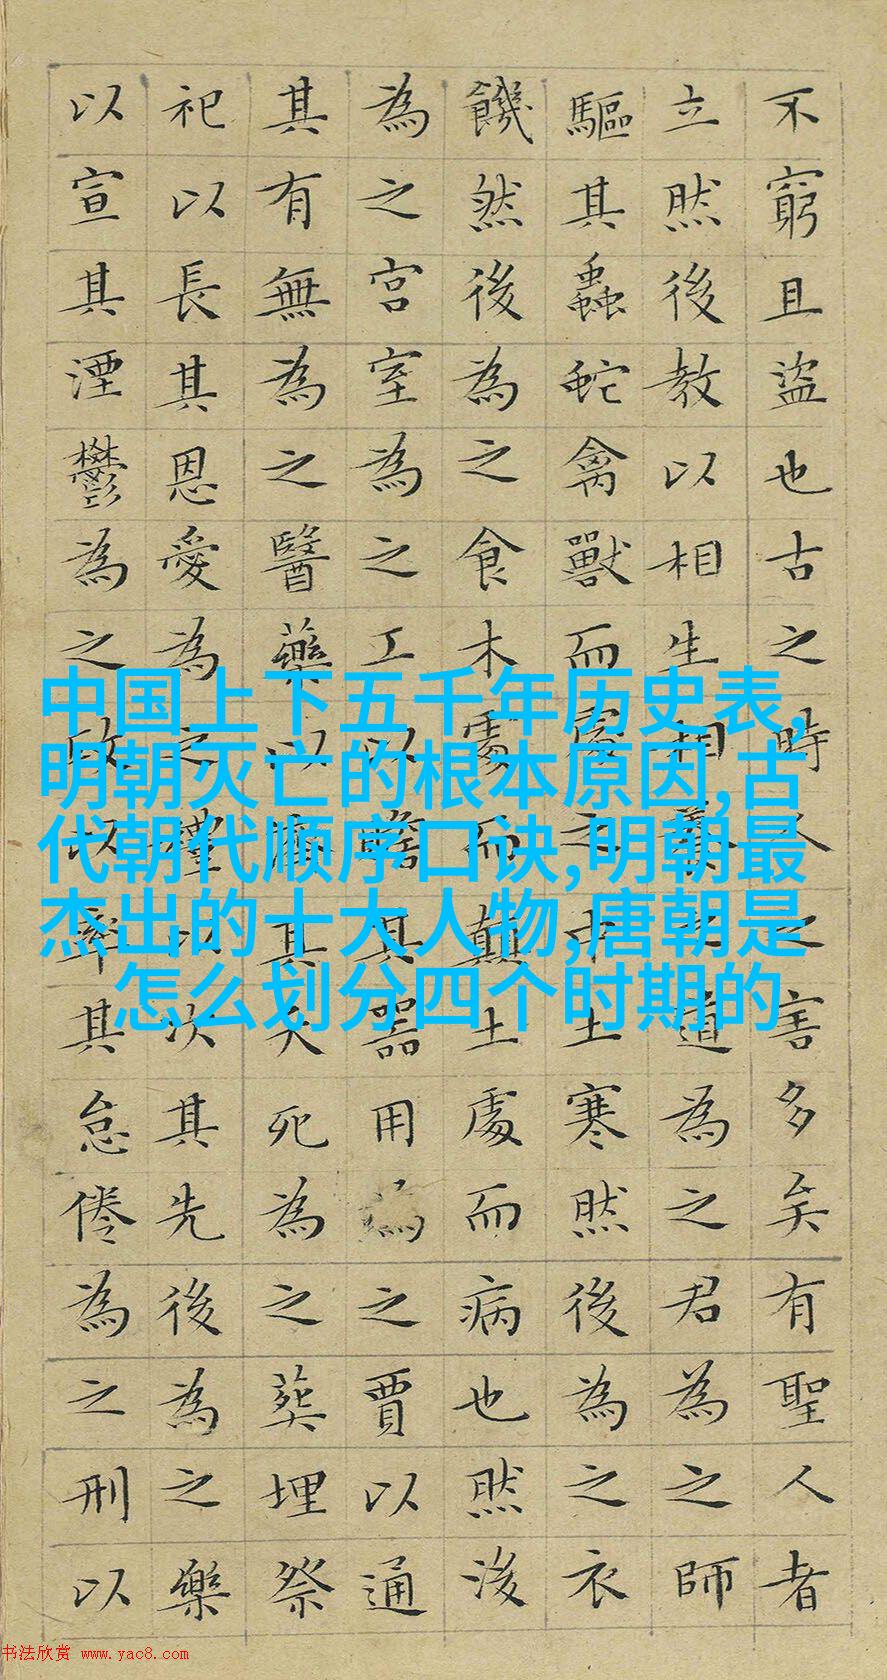 不窮且盜也古之時人之害多矣有聖人者
立然後教以相生相養之道為之君為之師
驅其蟲蛇禽獸而處之中土寒然後為之衣
饑然後為之食木處而顛土處而病也然後
為之宮室為之工以贍其器用為之賈以通
其有無為之醫藥以濟其夭死為之葬埋祭
祀以長其恩愛為之禮以次其先後為之樂
以宣其湮鬱為之政以率其怠倦為之刑以
中国上下五千年历史表,
明朝灭亡的根本原因,古
代朝代顺序口诀,明朝最
杰出的十大人物,唐朝是
怎么划分四个时期的
书法欣赏 www.yac8.com